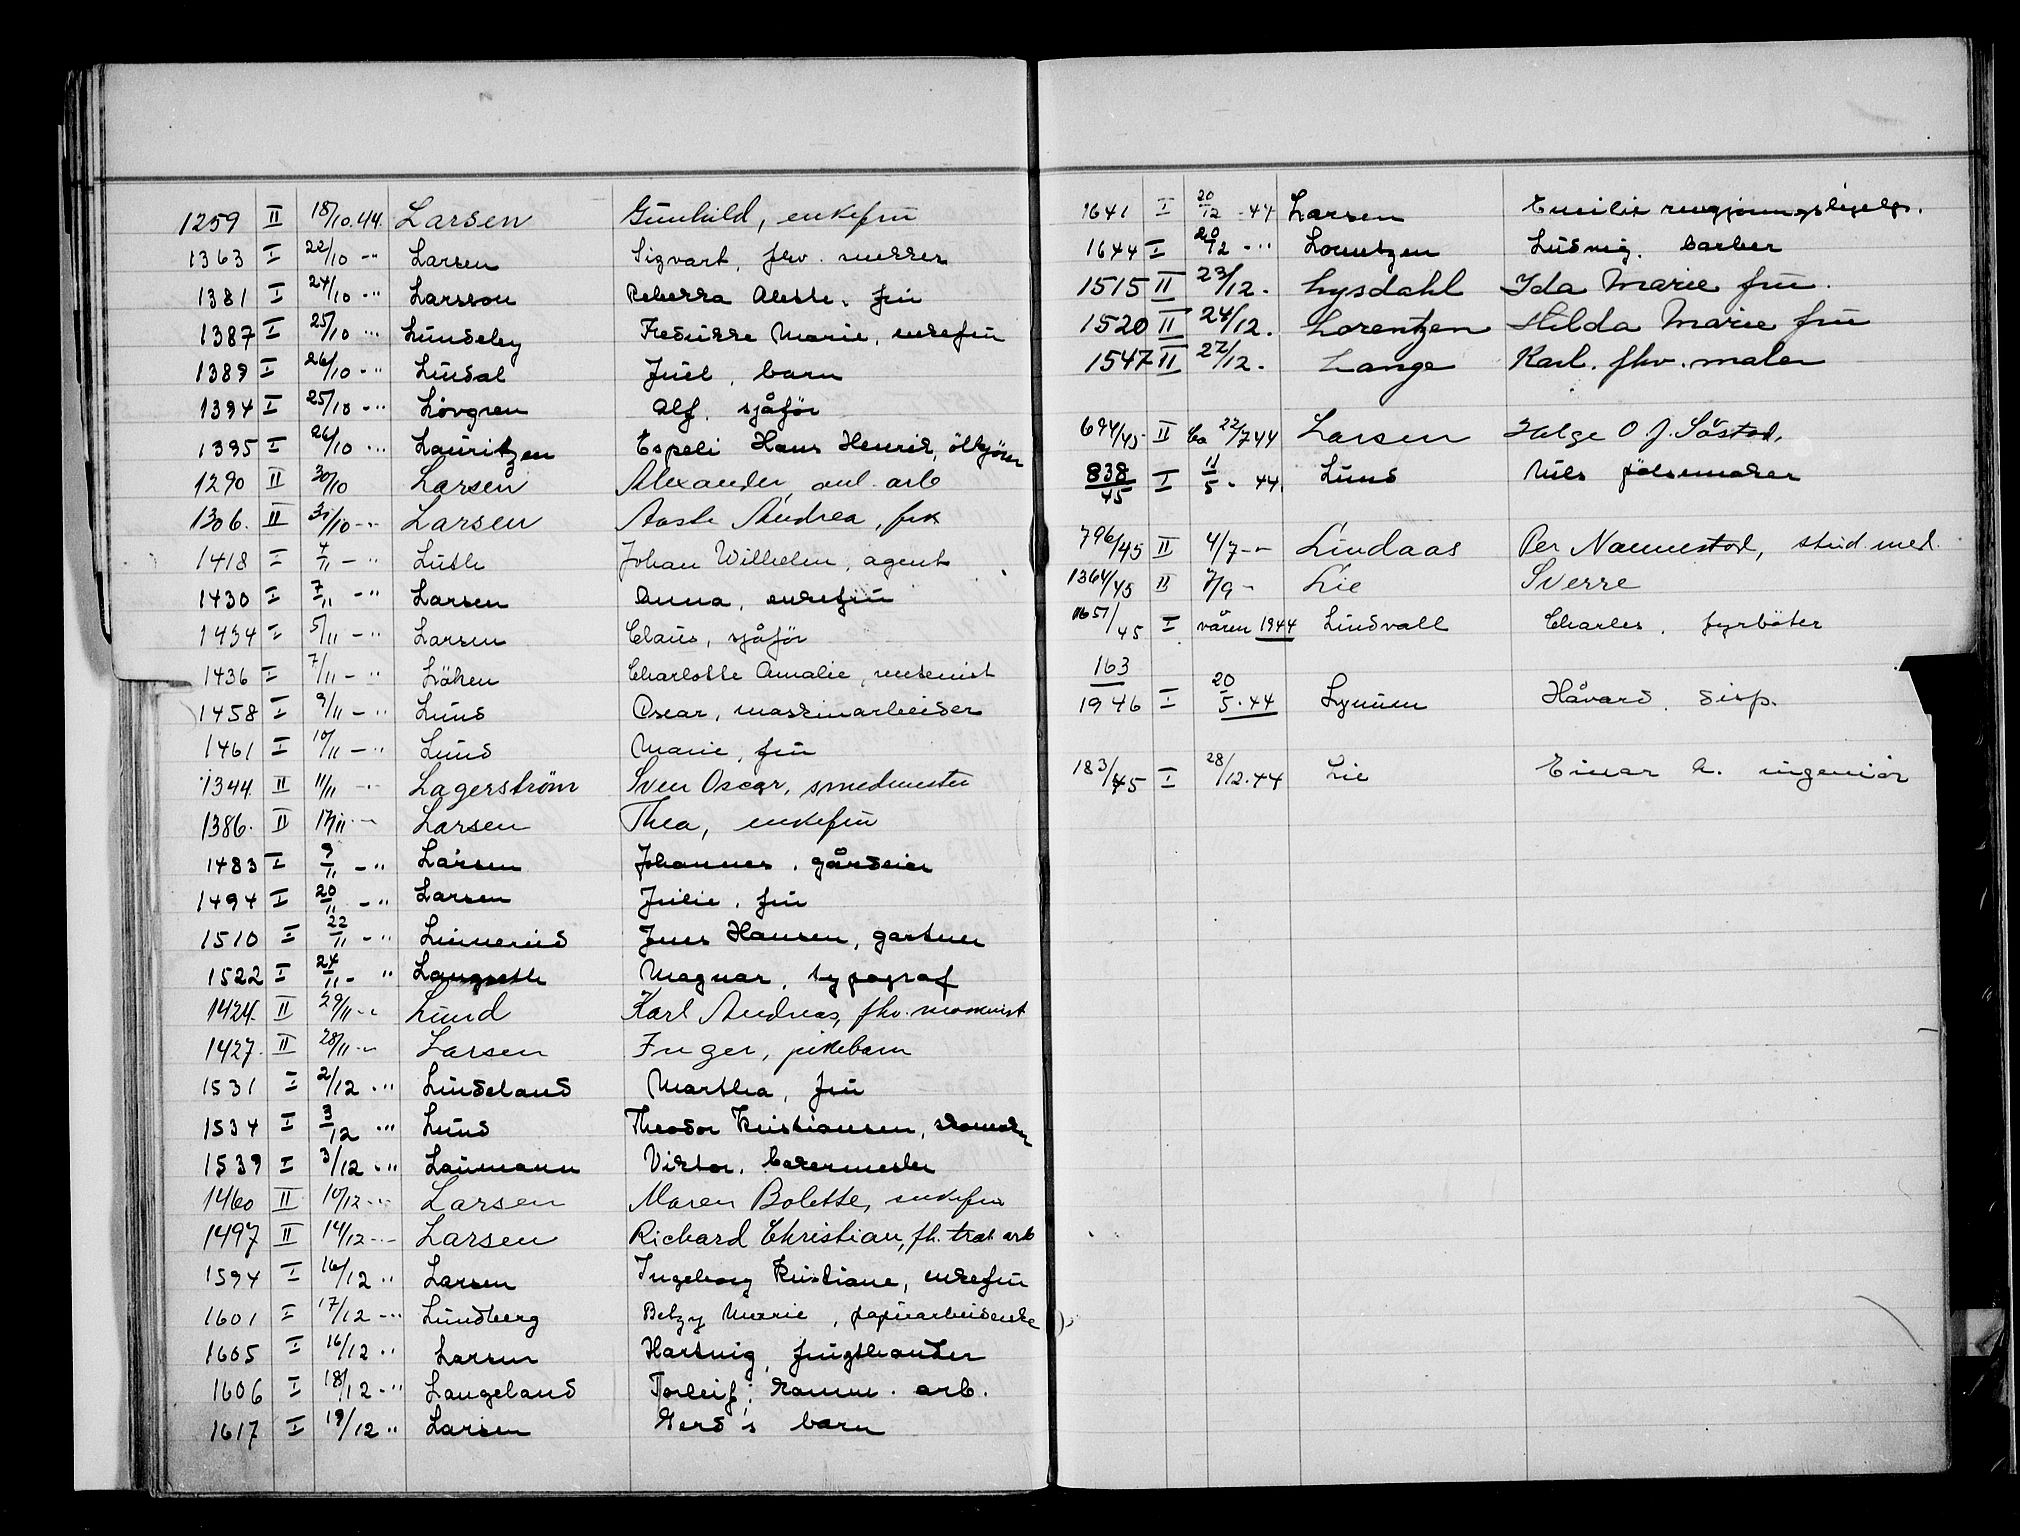 1259 II 18/10.44. Larsen Gunhild, enkefru
1363 I 22/10 -" Larsen Sigvart, fhv. snekker
1381 I 24/10 -" Larsson Rebekka Alette, fru
1387 I 25/10 -" Lundeby Fredrikke Marie, enkefru
1389 I 26/10 -" Lindal Juel, barn
1394 I 25/10 -" Lövgren Alf, sjåfør
1395 I 26/10 -" Lauritzen Espeli Hans Henrik, ölkjörer
1290 II 30/10 Larsen Alexander, anl. arb
1306. II 31/10 -" Larsen Aasta Andrea, frk
1418 I 4/11 - " Luth Johan Wilhelm, agent
1430 I 7/11 - " Larsen Anna, enkefru
1434 I 5/11 - " Larsen Claus, sjåför
1436 I 7/11 - " Löken Charlotte Amalie,
1458 I 9/11 - " Lund Oscar, maskinarbeider
1461 I 10/11 - " Lund Marie, fru
1344 II 11/11 -" Lagerström Sven Oscar, smedmester
1386. II 17/11 -" Larsen Thea, enkefru
1483 I 9/11 - " Larsen Johannes, gårdeier
1494 I 20/11 - " Larsen Julie, fru
1510 I 22/11 - " Linnerud Jens Hansen, gartner
1522 I 24/11 - " Langseth Magnar, typograf
1424. II 29/11 -" Lund Karl Andreas, fhv. maskinist
1427. II 28/11 -" Larsen Inger, pikebarn
1531 I 2/12 -" Lindeland Martha, fru
1534 I 3/12 -" Lund Theodor Kristiansen, skomaker
1539 I 3/12 -" Laumann Viktor, bakermester
1460 II 10/12 -" Larsen Maren Bolette, enkefru
1497 II 14/12 -" Larsen Richard Christian, fh. trab arb
1594 I 16/12 " Larsen Ingeborg Kristiane, enkefru
1601 I 17/12 -" Lundberg Betzy Marie, papirarbeiderske
1605 I 16/12 -" Larsen Hartvig, frugthandler
1606 I 18/12 -" Langeland Torleif, komm. arb.
1617 I 19/12 " Larsen Gerd's barn
1641 I 20/12 -44 Larsen Emilie rengjøringshjelp.
1644 I 20/12 -" Lorentzen Ludvig, barber
1515 II 23/12. Lysdahl Ida Marie fru.
1520 II 24/12. Lorentzen Hilda Marie fru
1547 II 22/12. Lange Karl. fhv. maler
694/45 II ca 22/7 44 Larsen Helge O. J. Såstad,
838/45 I 11/5 - 44. Lund Nils pölsemaker
796/45 II 4/7 -" Lindaas Per Nannestad, stud. med.
1364/45 II 7/9 - Lie Sverre
1651/45 I våren 1944 Lindvall Charles, fyrböter
163/1946 I 20/5.44 Lynum Håvard, disp.
183/45 I 28/12.44 Lie Einar A. ingeniör